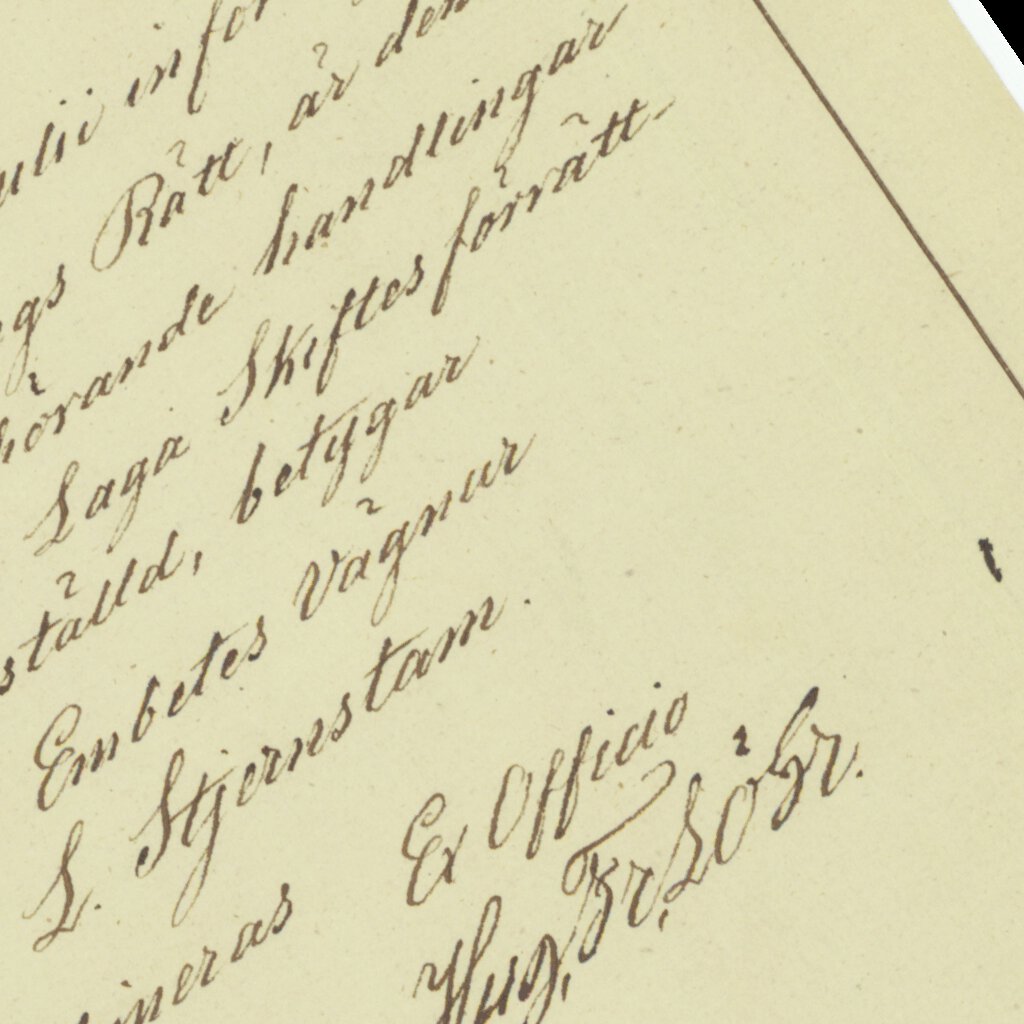 ulii infor
gs Rätt, är den
hörande handlingar
Laga Skiftes förrätt-
ställd, betygar
Embetes vägnar
L. Stjernstam.
Ex Officio
neras
Hug. Fr. Löhr.